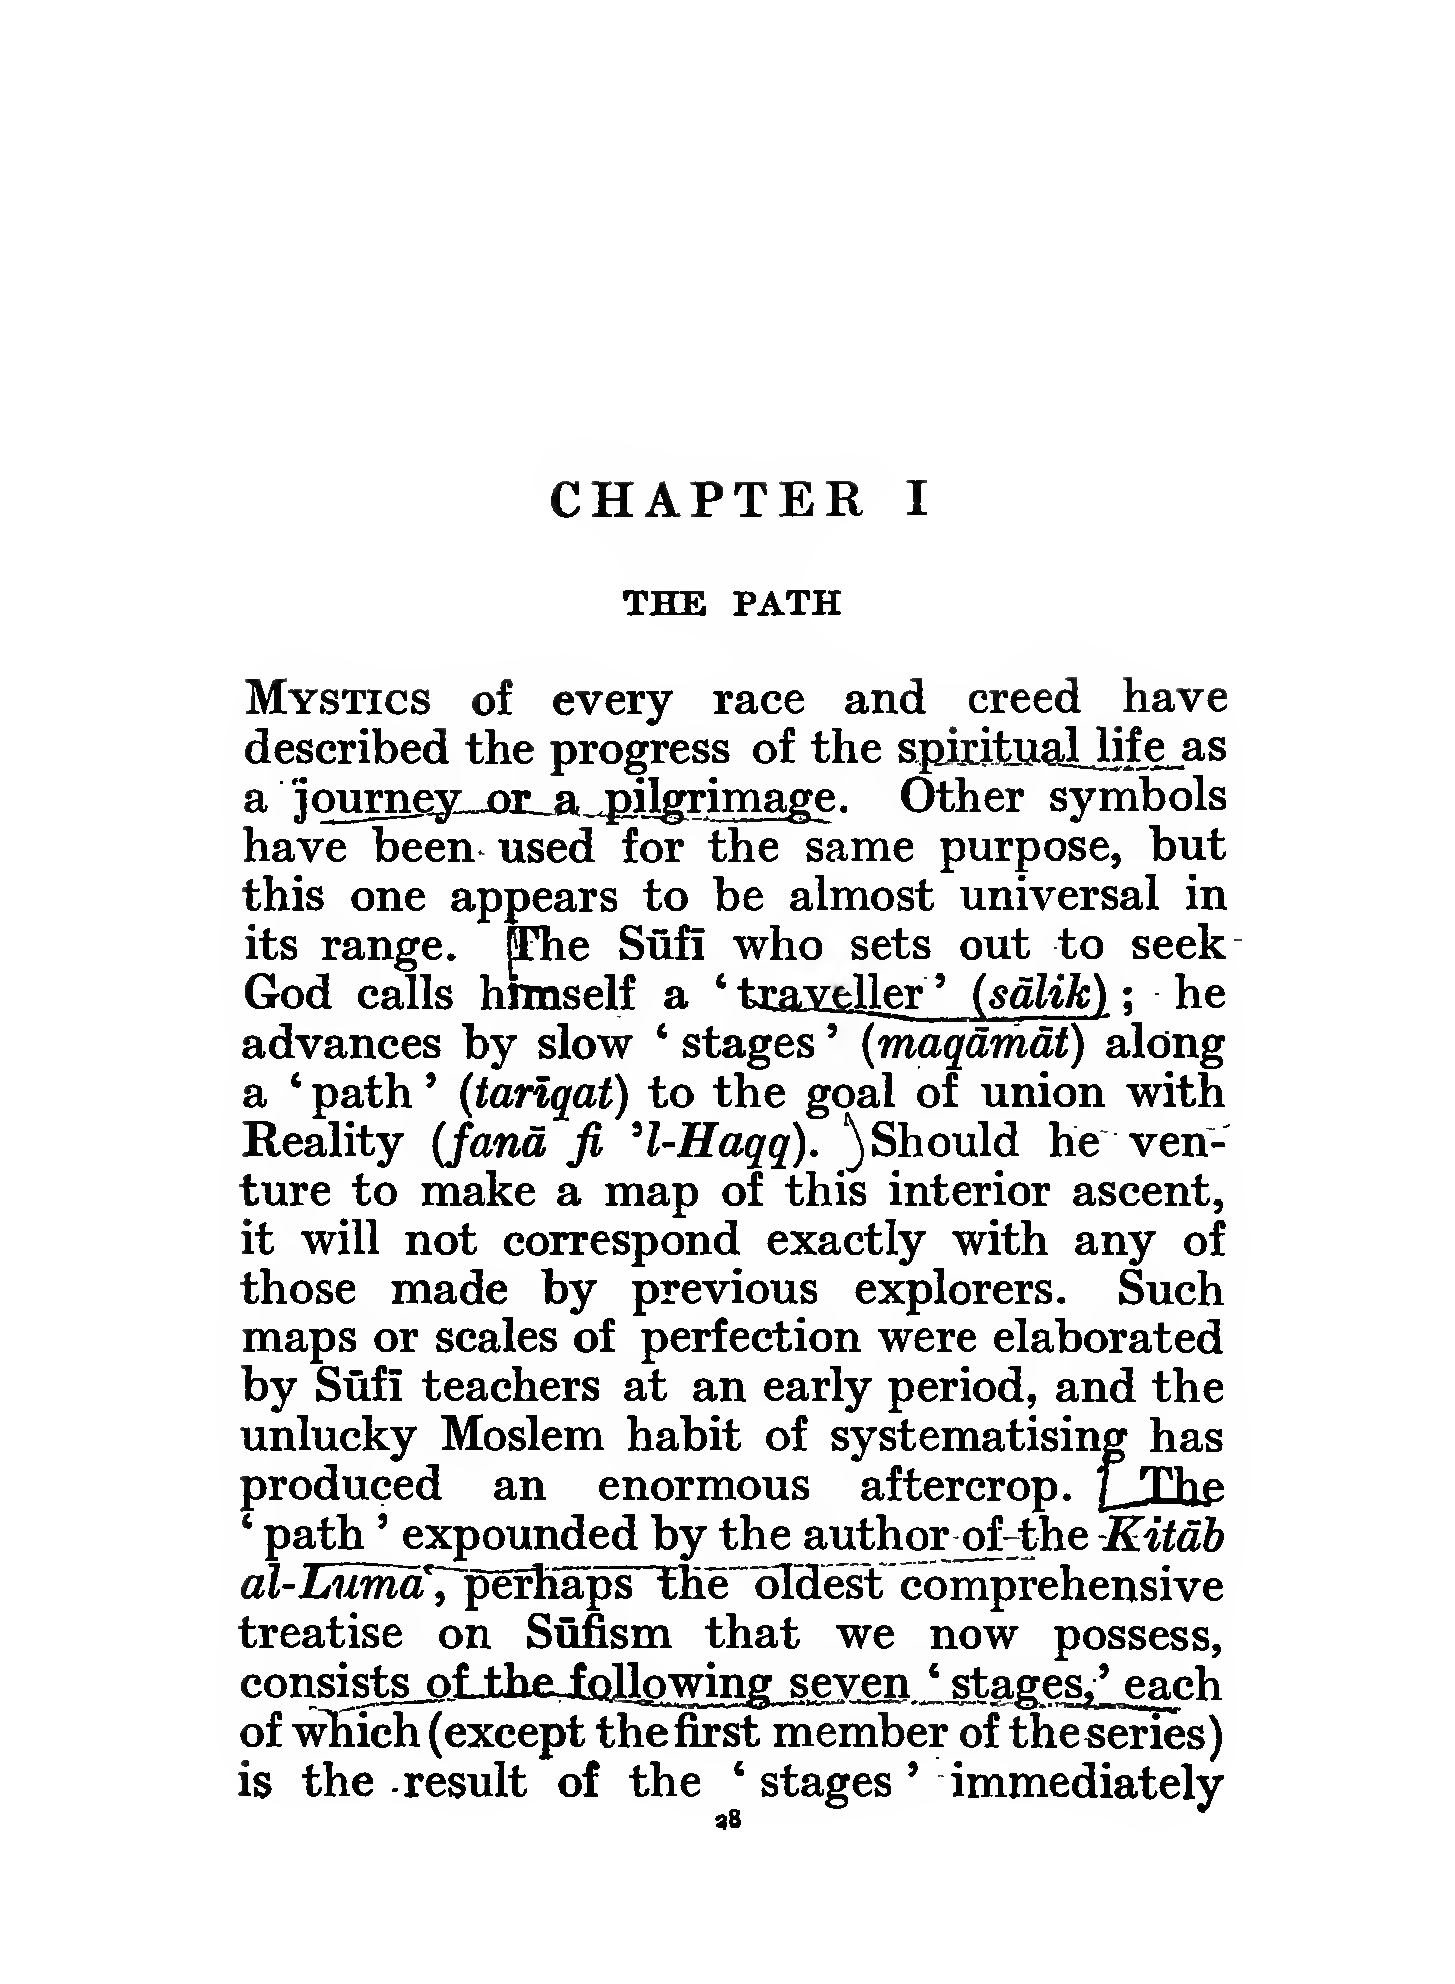 CHAPTER I
THE PATH
MYSTICS of every race and creed have
described the progress of the spiritual life as
a journey or a pilgrimage. Other symbols
have been used for the same purpose, but
this one appears to be almost universal in
its range. The Sūfī who sets out to seek
God calls himself a ‘traveller’ (sālik); he
advances by slow ‘stages’ (maqāmāt) along
a ‘path’ (tarīqat) to the goal of union with
Reality (fanā fi ’l-Haqq). Should he ven-
ture to make a map of this interior ascent,
it will not correspond exactly with any of
those made by previous explorers. Such
maps or scales of perfection were elaborated
by Sūfī teachers at an early period, and the
unlucky Moslem habit of systematising has
produced an enormous aftercrop. The
‘path’ expounded by the author of the Kitāb
al-Luma‘, perhaps the oldest comprehensive
treatise on Sūfism that we now possess,
consists of the following seven ‘stages,’ each
of which (except the first member of the series)
is the result of the ‘stages’ immediately
28